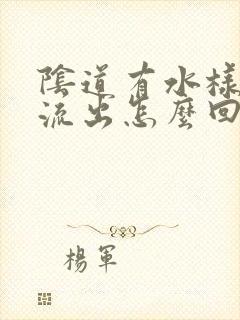 陰道有水樣
流出怎麼回
楊軍